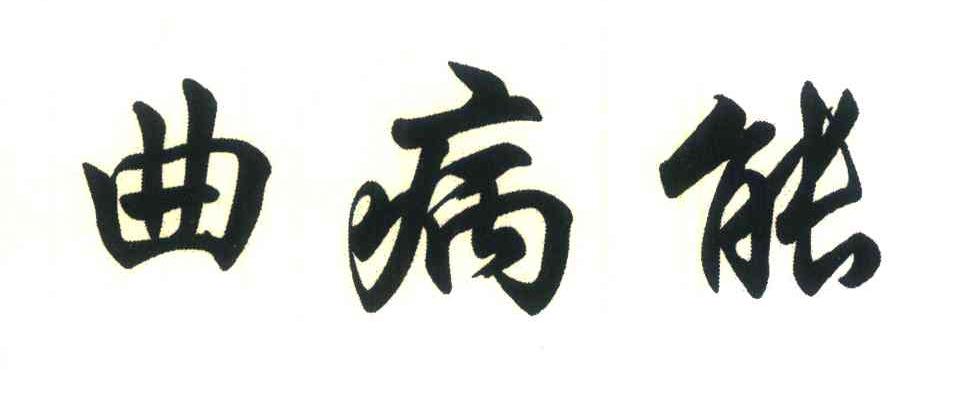 曲病能